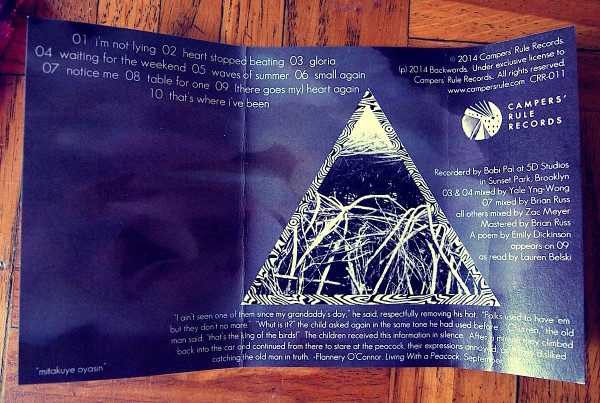 01 i'm not lying 02 heart stopped beating 03 gloria
04 waiting for the weekend 05 waves of summer 06 small again
07 notice me 08 table for one 09 (there goes my) heart again
10 that's where i've been
© 2014 Campers' Rule Records.
(p) 2014 Backwords. Under exclusive license to
Campers Rule Records. All rights reserved.
www.campersrule.com CRR-011
CAMPERS'
RULE
RECORDS
Recorderd by Babi Pai at 5D Studios
in Sunset Park, Brooklyn
03 & 04 mixed by Yale Yng-Wong
07 mixed by Brian Russ
all others mixed by Zac Meyer
Mastered by Brian Russ
A poem by Emily Dickinson
appears on 09
as read by Lauren Belski
"I ain't seen one of them since my grandaddy's day," he said, respectfully removing his hat. "Folks used to have 'em
but they don't no more." "What is it?" the child asked again in the same tone he had used before. "Churren," the old
man said, "that's the king of the birds!" The children received this information in silence. After a minute they climbed
back into the car and continued from there to stare at the peacock, their expressions annoyed, as they disliked
catching the old man in truth. -Flannery O'Connor, Living With a Peacock, September
"mitakuye oyasin"